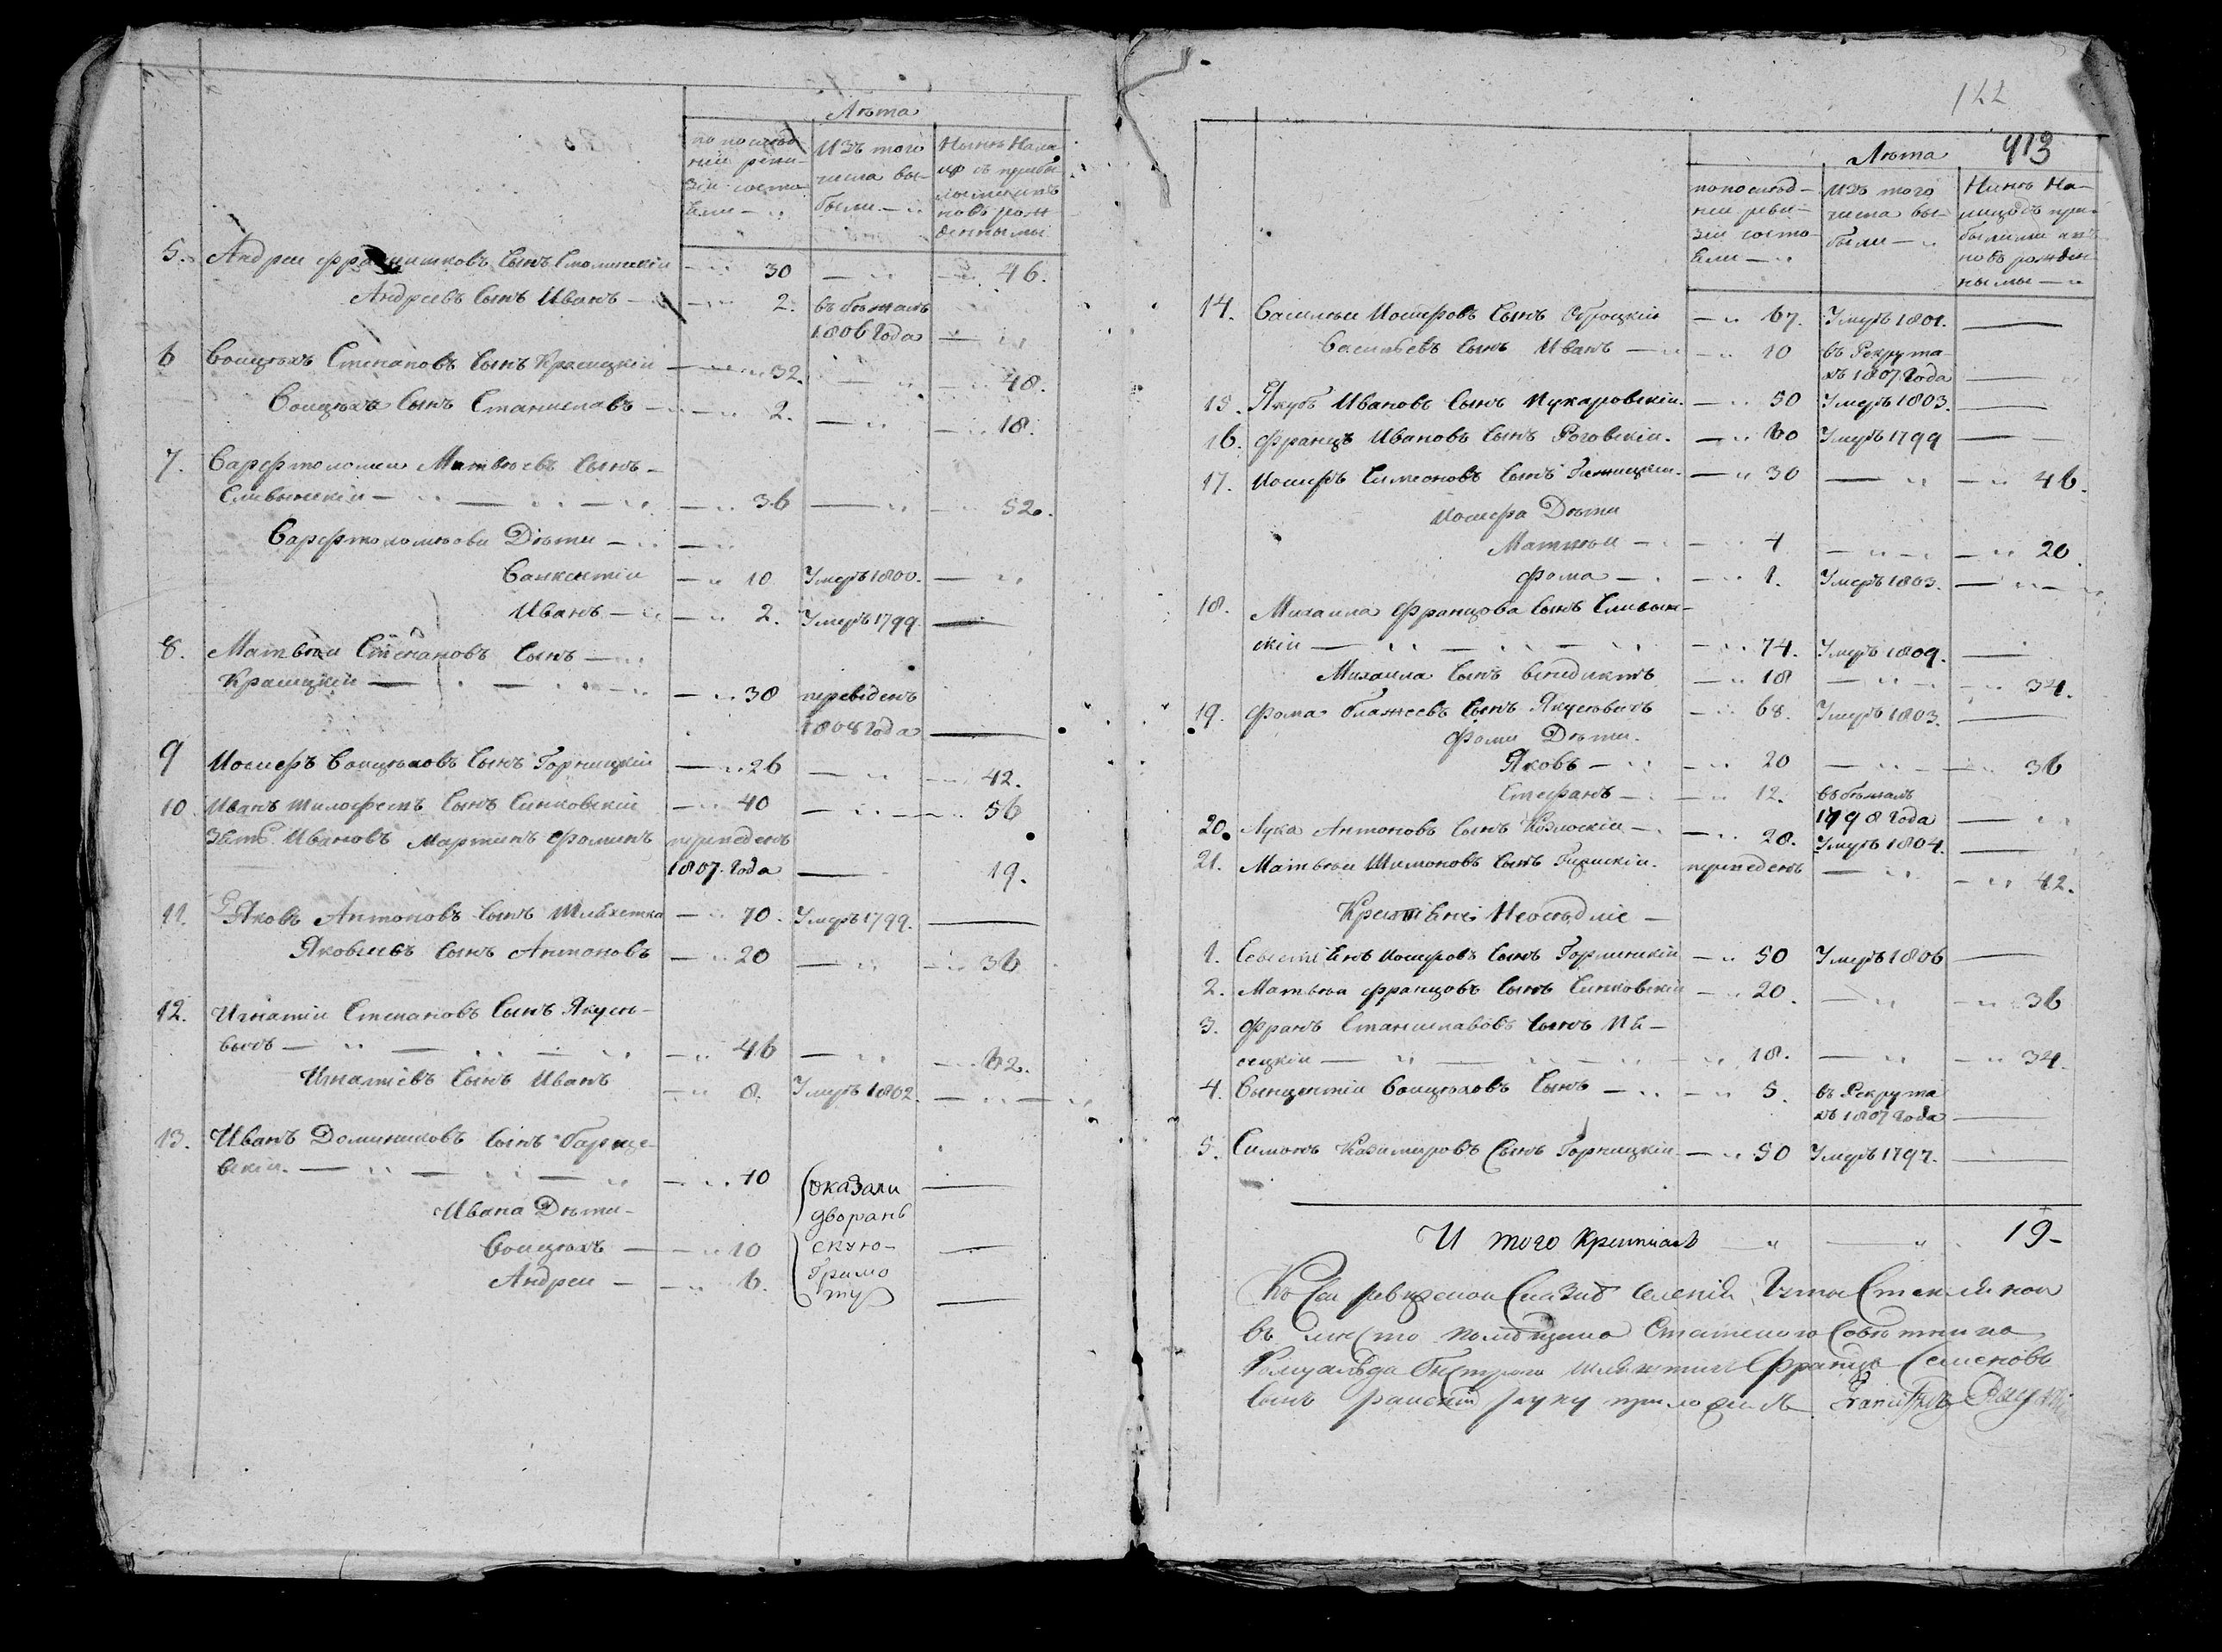 Лѣта
по послѣд-
ней реви-
зіи состо-
яли
Изъ того
числа вы-
были
Нынѣ Нали
цо съ прибы
лыми и въ
новь рож
денными
5. Андрей Сынъ 30 46.
Андреевъ Сынъ Иванъ 2. въ бѣжалъ
1806 Года
6 Воицѣхъ Степановъ Сынъ Красицкій 32. 48.
Воицѣхъ Сынъ Станиславъ 2. 18.
7. Варфтоломеи Матвѣевъ Сынъ
Сливинскій 36 52.
Варфтоломѣови Дѣти
Викентіи 10 Умеръ 1800.
Иванъ 2. Умеръ 1799.
8. Матвѣи Степановъ Сынъ
Красицкій 38 переведенъ
1808 Года
9 Иосифъ Воицѣховъ Сынъ Горницкій 26 42.
10. Иванъ Сынъ Синковскій 40 56
Зять Ивановъ Мартинъ Фоминъ переведенъ
1807. Года 19.
11. Яковъ Антоновъ Сынъ Шляхетка 70. Умеръ 1799.
Яковлевъ Сынъ Антоновъ 20 36
12. Игнатіи Степановъ Сынъ Якусе-
вичъ 46 62.
Игнатіевъ Сынъ Иванъ 8. Умеръ 1802.
13. Иванъ Доминиковъ Сынъ Барще-
вскіи 40 оказали
дворянь
Ивана Дѣти
Воицѣхъ 10 скую
Андреи 6. Грамо
ту
122
413
Лѣта
по послѣд-
ней реви-
зіи состо-
яли
Изъ того
числа вы-
были
Нынѣ На-
лицо съ при-
былыми и въ
новь рожден
ными
14. Василѣи Иосифовъ Сынъ 67. Умеръ 1801.
Васильевъ Сынъ Иванъ 10 въ Рекрута
хъ 1807 Года
15. Якубъ Ивановъ Сынъ Пукаровскіи. 50 Умеръ 1803.
16. Францъ Ивановъ Сынъ Роговскіи. 60 Умеръ 1799
17. Иосифъ Симеоновъ Сынъ 30 46.
Иосифа Дѣти
Матвѣи 4 20
Фома 1. Умеръ 1803.
18. Михаила Францова Сынъ Сливин-
скіи 74. Умеръ 1809.
Михаила Сынъ Венедиктъ 18 34.
19. Фома Блажеевъ Сынъ Якусевичъ 68. Умеръ 1803.
Фоми Дѣти.
Яковъ 20 36
Стефанъ 12. въ бѣжалъ
1798 Года
20. Лука Антоновъ Сынъ Козлоскіи 28. Умеръ 1804.
21. Матвѣи Шимоновъ Сынъ переведенъ 42.
Крестянѣ Неосѣдліе
1. Иосифовъ Сынъ 50 Умеръ 1806
2. Матвѣи Францовъ Сынъ Синковскіи 20. 36
3. Франъ Станиславовъ Сынъ Пя-
сецкіи 18. 34.
4. Винцентіи Воицѣховъ Сынъ 5. въ Рекрута
хъ 1807 Года
5. Симонъ Казимировъ Сынъ Горницкіи 50 Умеръ 1797.
И того Крестианъ 19
Ко Сеи Селенія
въ мѣсто помѣщика Статского Совѣтника
Ромуальда Быстрого Франца Семеновъ
Сынъ руку приложилъ